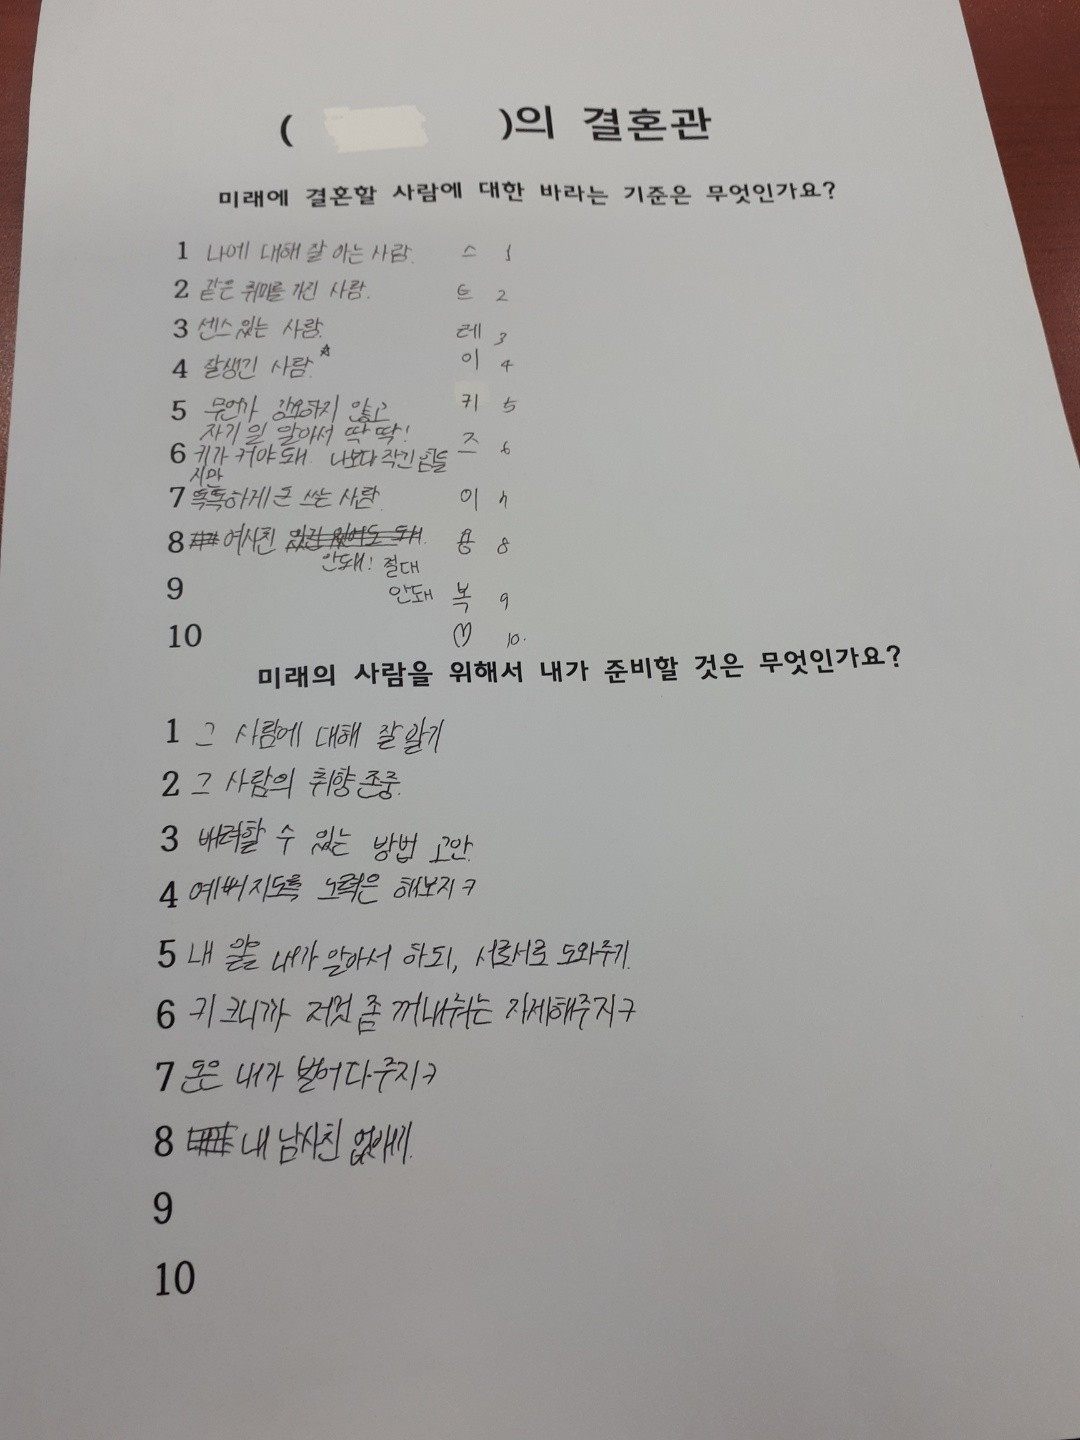 ( )의 결혼관
미래에 결혼할 사람에 대한 바라는 기준은 무엇인가요?
1 나에 대해 잘 아는 사람. 스 1
2 같은 취미를 가진 사람. 트 2
3 센스 있는 사람. 레 3
4 잘생긴 사람.☆ 이 4
5 무언가 강요하지 않고 키 5
자기 일 알아서 딱딱!
6 키가 커야 돼. 나보다 작긴 힘들 즈 6
지만
7 똑똑하게 돈 쓰는 사람. 이 7
8 여사친 있긴 있어도 돼. 용 8
안돼! 절대
9 안돼 복 9
10 ♡ 10.
미래의 사람을 위해서 내가 준비할 것은 무엇인가요?
1 그 사람에 대해 잘 알기
2 그 사람의 취향 존중.
3 배려할 수 있는 방법 고안.
4 예뻐지도록 노력은 해보지ㅋ
5 내 일은 내가 알아서 하되, 서로서로 도와주기.
6 키 크니까 저것 좀 꺼내줘는 자제해주지ㅋ
7 돈은 내가 벌어다주지ㅋ
8 내 남사친 없애기.
9
10